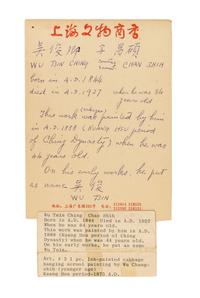 上海文物商店
吴俊卿 字昌硕
WU TSIN CHING CHAN SHIH
born in A.D. 1844
died in A.D. 1927 when he was 84
years old
This work was painted by him
in A.D. 1888 (KUANG HSU period
of Ching Dynasty) when he was
44 years old.
On his early works, he put
as name 吴俊
WU TSIN
Wu Tsin Ching Chan Shih
Born in A.D. 1844 Died in A.D. 1927
When he was 84 years old.
This work was painted by him in A.D.
1888 (Kuang Hsu period of Ching
Dynasty) when he was 44 years old.
On his early works, he put as name
Wu Tsin.
hanging scroll painting by Wu Chang-
shih (younger age)